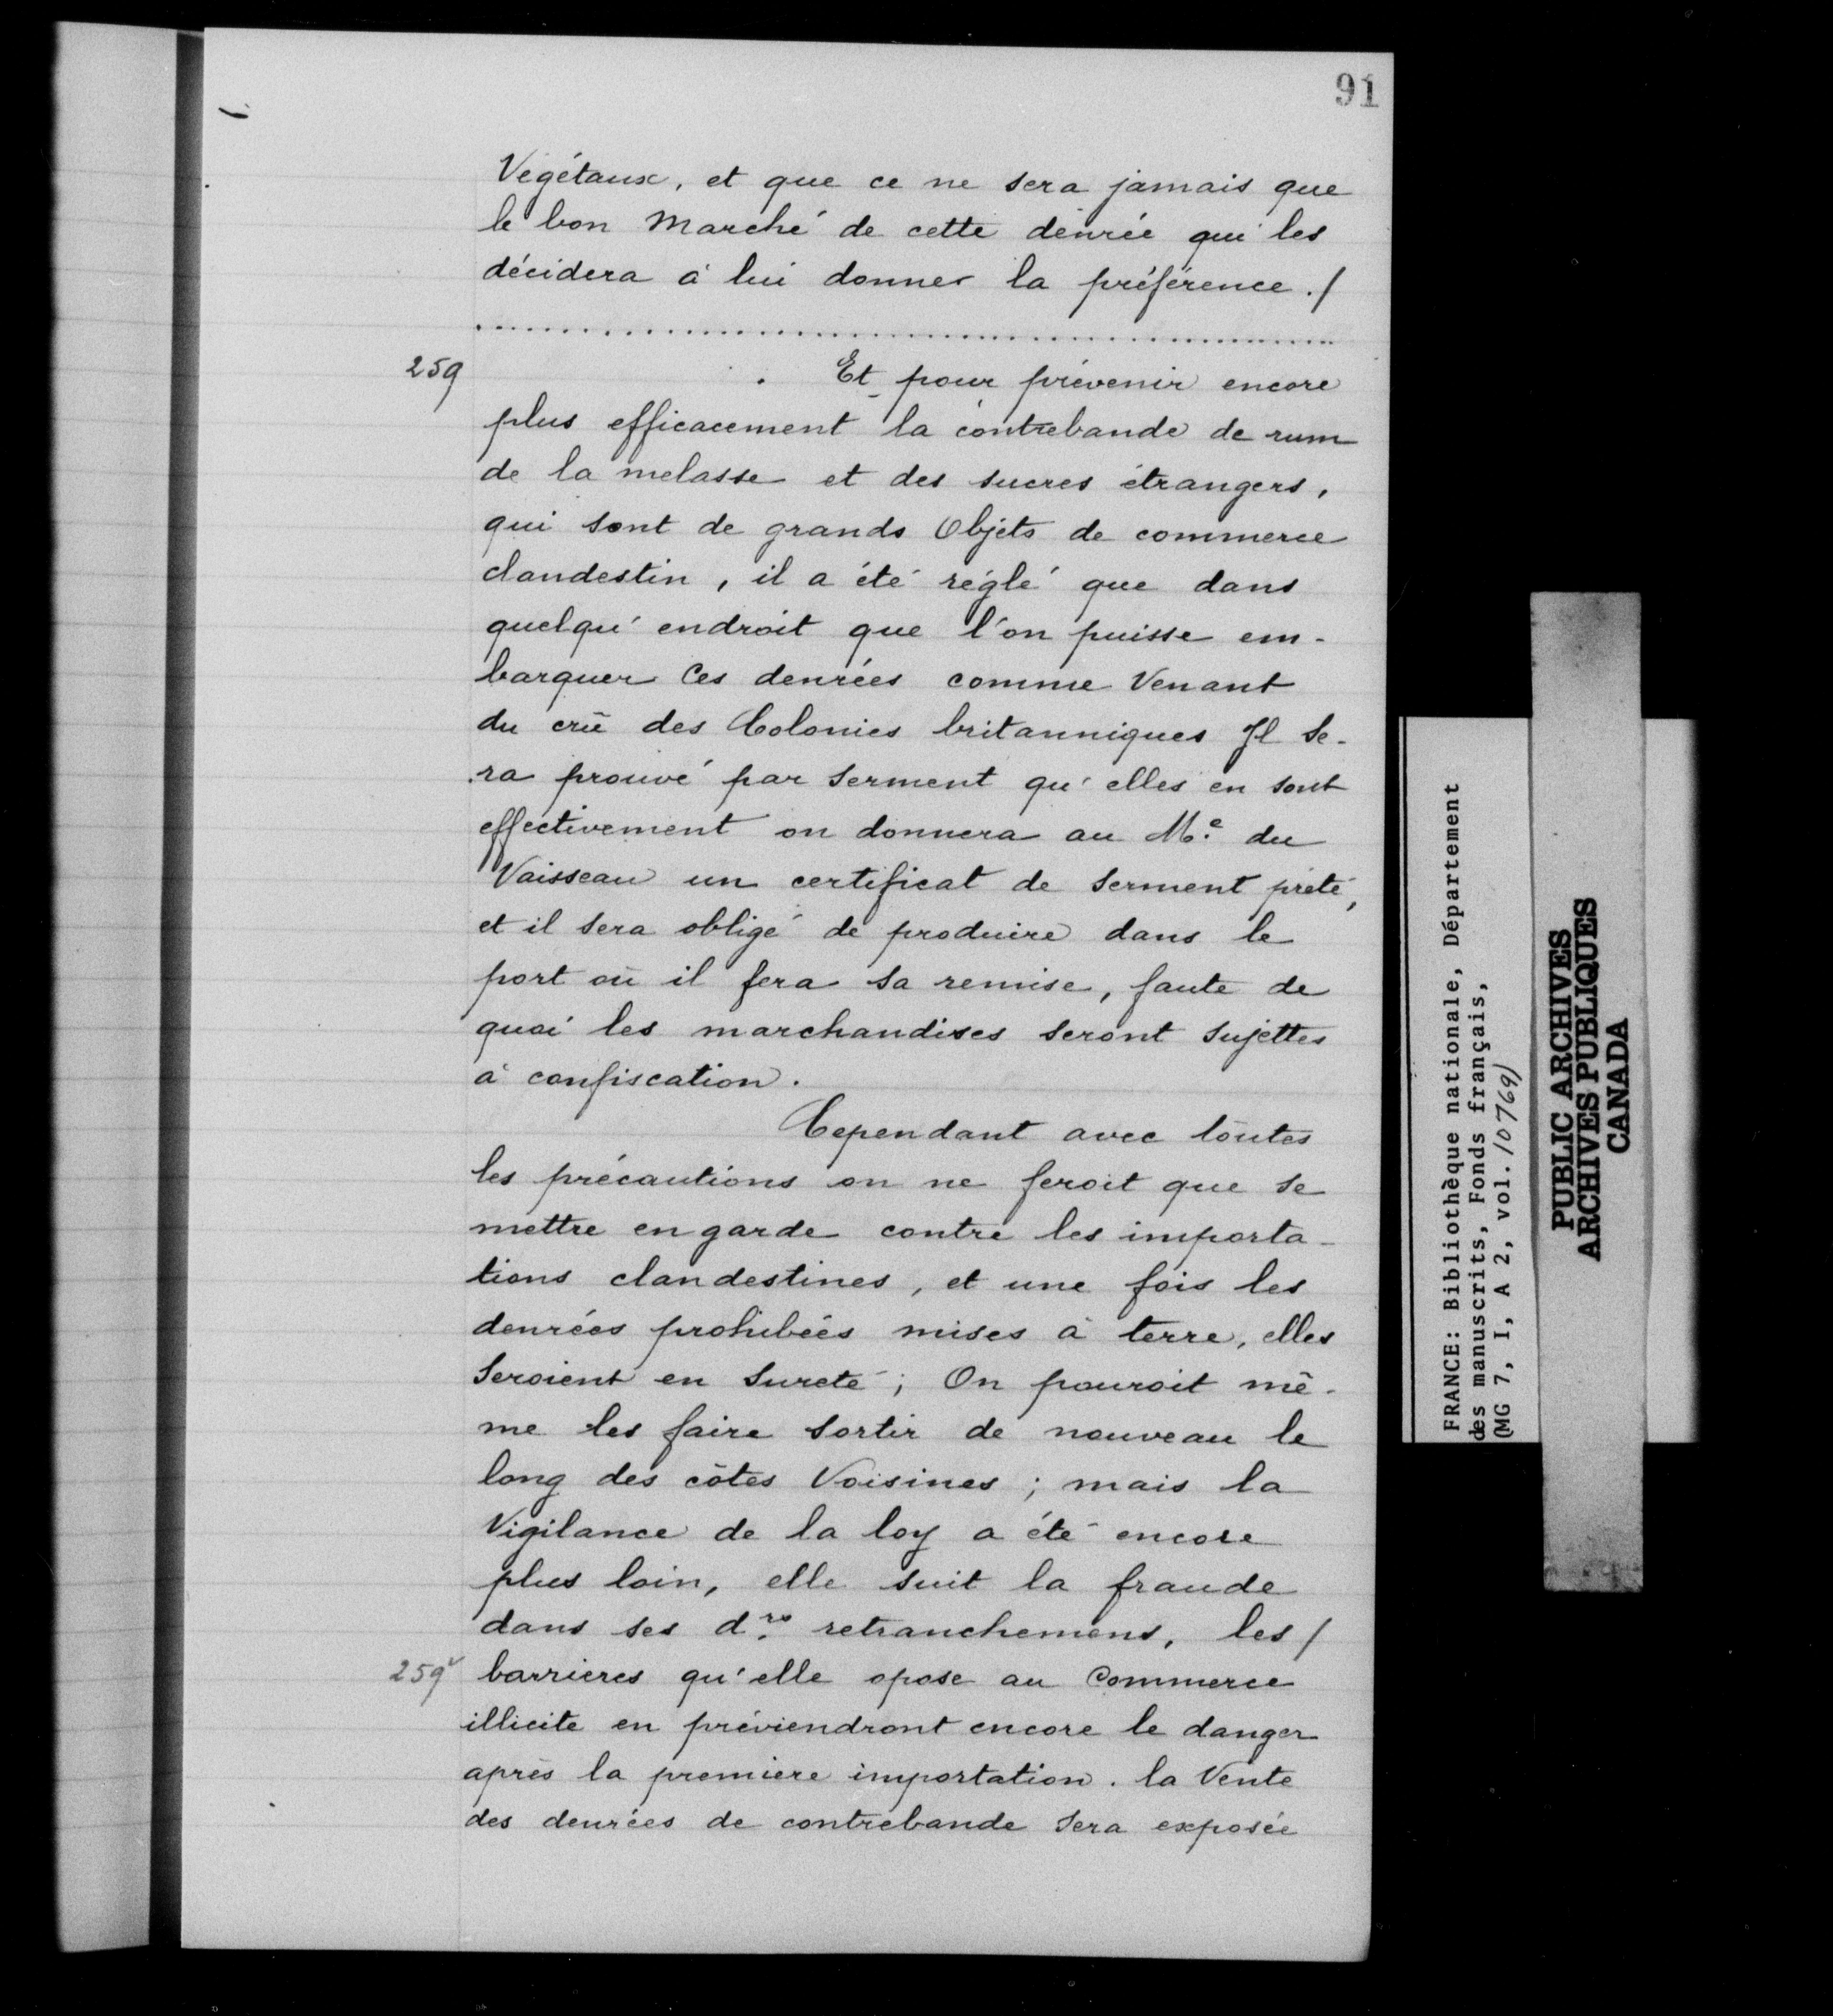 91
Vegétaux, et que ce ne sera jamais que
le bon Marché de cette denrée qui les
décidera à lui donner la préférence. /
........................................................
259
. Et pour prévenir encore
plus efficacement la contrebande de rum
de la melasse et des sucres étrangers,
qui sont de grands Objets de commerce
clandestin, il a été réglé que dans
quelqu'endroit que l'on puisse em-
barquer Ces denrées comme Venant
du crû des Colonies britanniques Il se-
ra prouvé par serment qu'elles en sont
effectivement on donnera au M.e du
Vaisseau un certificat de serment prêté,
et il sera obligé de produire dans le
port où il fera sa remise, faute de
quoi les marchandises seront sujettes
à confiscation.
Cependant avec toutes
les précautions on ne feroit que se
mettre en garde contre les importa-
tions clandestines, et une fois les
denrées prohibées mises à terre, elles
seroient en sureté ; On pouroit mê-
me les faire sortir de nouveau le
long des côtes Voisines ; mais la
Vigilance de la loy a été encore
plus loin, elle suit la fraude
dans ses d.rs retranchemens, les /
259v
barrieres qu'elle opose au Commerce
illicite en préviendront encore le danger
après la premiere importation. la Vente
des denrées de contrebande sera exposée
FRANCE: Bibliothèque nationale, Département
des manuscrits, Fonds français,
(MG 7, I, A 2, vol. 10769)
PUBLIC ARCHIVES
ARCHIVES PUBLIQUES
CANADA